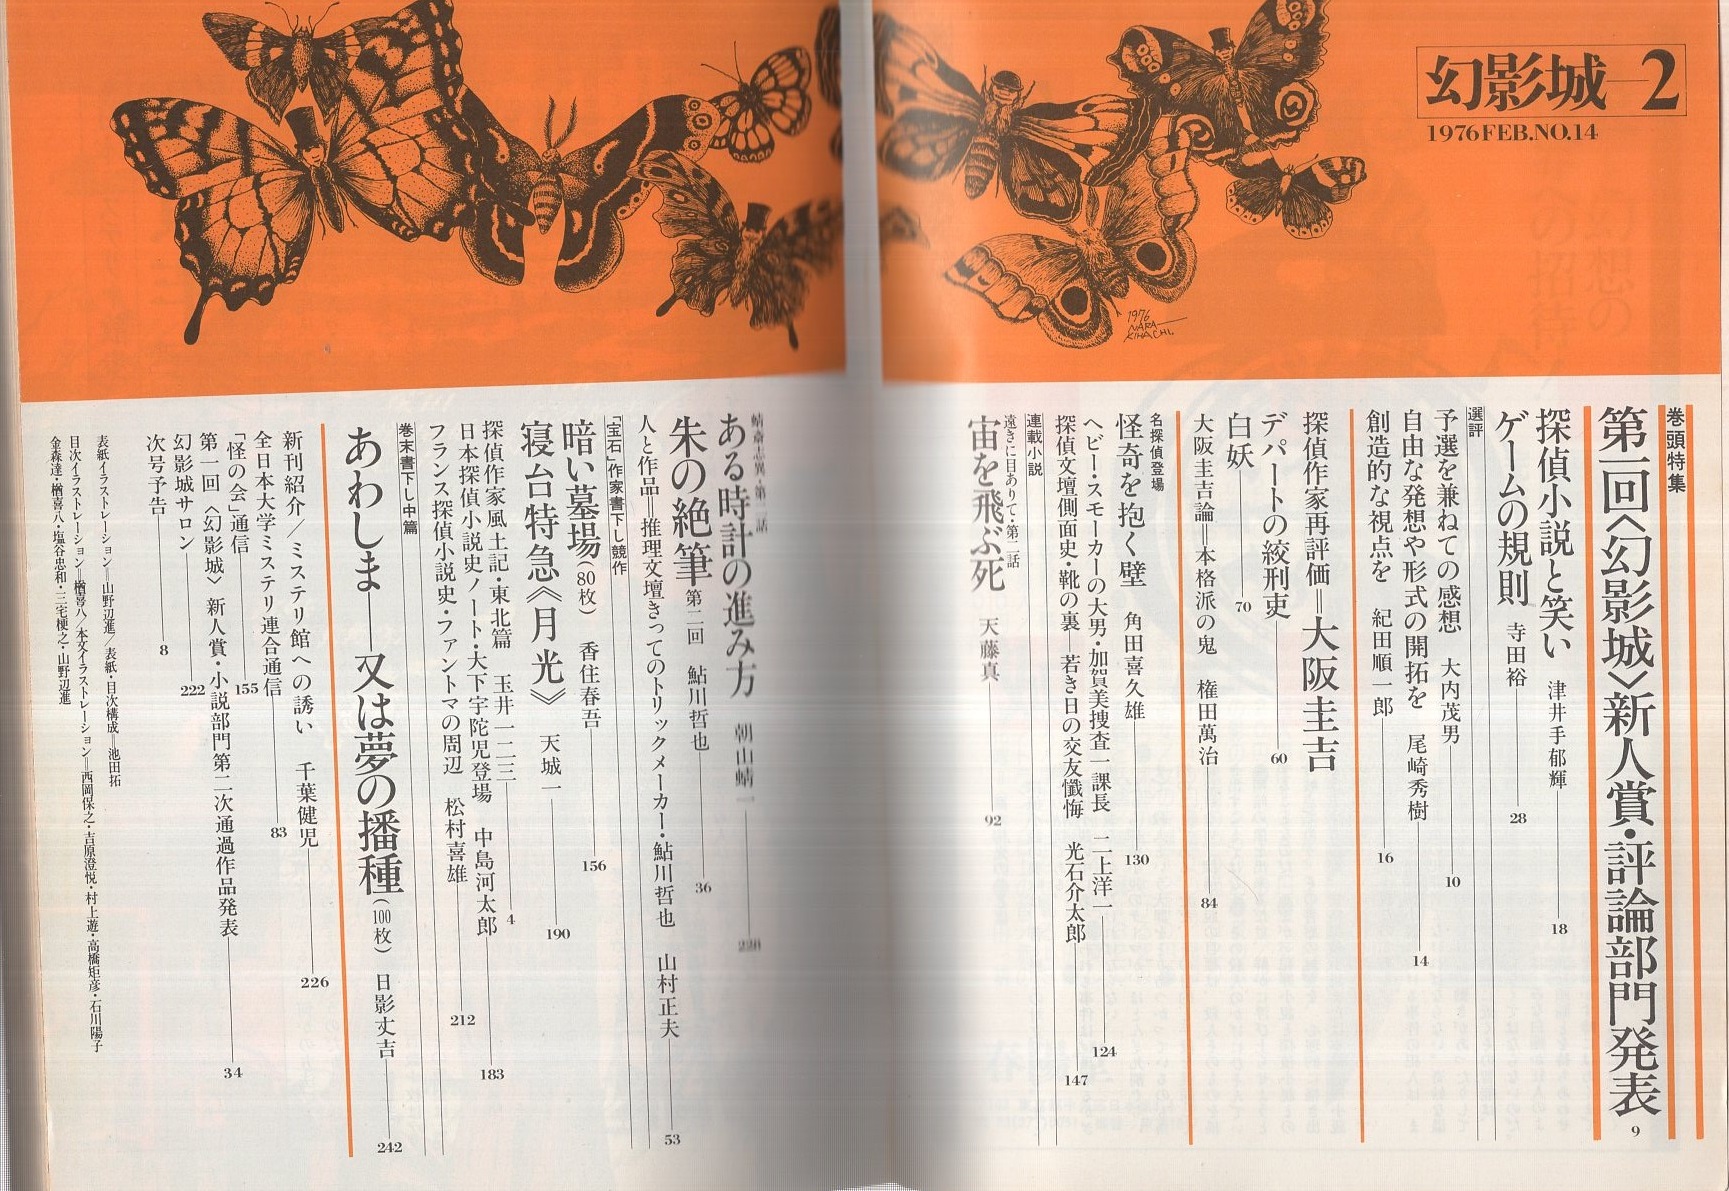 幻影城―2
1976 FEB. NO.14
1976
NARA
KIHACHI.
巻頭特集
第一回〈幻影城〉新人賞・評論部門発表 9
探偵小説と笑い 津井手郁輝 18
ゲームの規則 寺田裕 28
選評
予選を兼ねての感想 大内茂男 10
自由な発想や形式の開拓を 尾崎秀樹 14
創造的な視点を 紀田順一郎 16
探偵作家再評価=大阪圭吉
デパートの絞刑吏 60
白妖 70
大阪圭吉論=本格派の鬼 権田萬治 84
名探偵登場
怪奇を抱く壁 角田喜久雄 130
ヘビー・スモーカーの大男・加賀美捜査一課長 二上洋一 124
探偵文壇側面史・靴の裏 若き日の交友懺悔 光石介太郎 147
連載小説
遠きに目ありて・第二話
宙を飛ぶ死 天藤真 92
蜻斎志異・第二話
ある時計の進み方 朝山蜻一 228
朱の絶筆 第二回 鮎川哲也 36
人と作品=推理文壇きってのトリックメーカー・鮎川哲也 山村正夫 53
「宝石」作家書下し競作
暗い墓場(80枚) 香住春吾 156
寝台特急《月光》 天城一 190
探偵作家風土記・東北篇 玉井一二三 4
日本探偵小説史ノート・大下宇陀児登場 中島河太郎 183
フランス探偵小説史・ファントマの周辺 松村喜雄 212
巻末書下し中篇
あわしま―又は夢の播種(100枚) 日影丈吉 242
新刊紹介/ミステリ館への誘い 千葉健児 226
全日本大学ミステリ連合通信 83
「怪の会」通信 155
第一回〈幻影城〉新人賞・小説部門第二次通過作品発表 34
幻影城サロン 222
次号予告 8
表紙イラストレーション=山野辺進/表紙・目次構成=池田拓
目次イラストレーション=楢喜八/本文イラストレーション=西岡保之・吉原澄悦・村上遊・高橋矩彦・石川陽子
金森達・楢喜八・塩谷忠和・三宅梗之・山野辺進